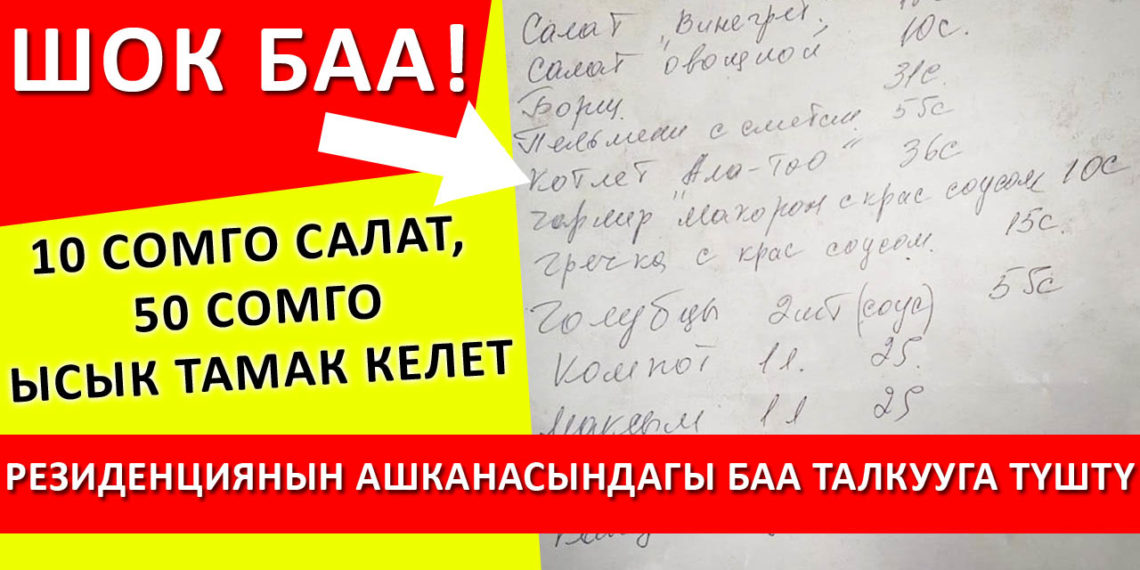 ШОК БАА!
10 СОМГО САЛАТ,
50 СОМГО
ЫСЫК ТАМАК КЕЛЕТ
Салат "Винегрет"
Салат овощной 10с.
Борщ 31с.
Пельмени с сметан. 55с
Котлет "Ала-Тоо" 36с
гарнир "Макарон с крас соусом 10с
гречка с крас соусом. 15с.
Голубцы 2шт (соус) 55с
Компот 1л. 25.
Максым 1л 25
РЕЗИДЕНЦИЯНЫН АШКАНАСЫНДАГЫ БАА ТАЛКУУГА ТҮШТҮ